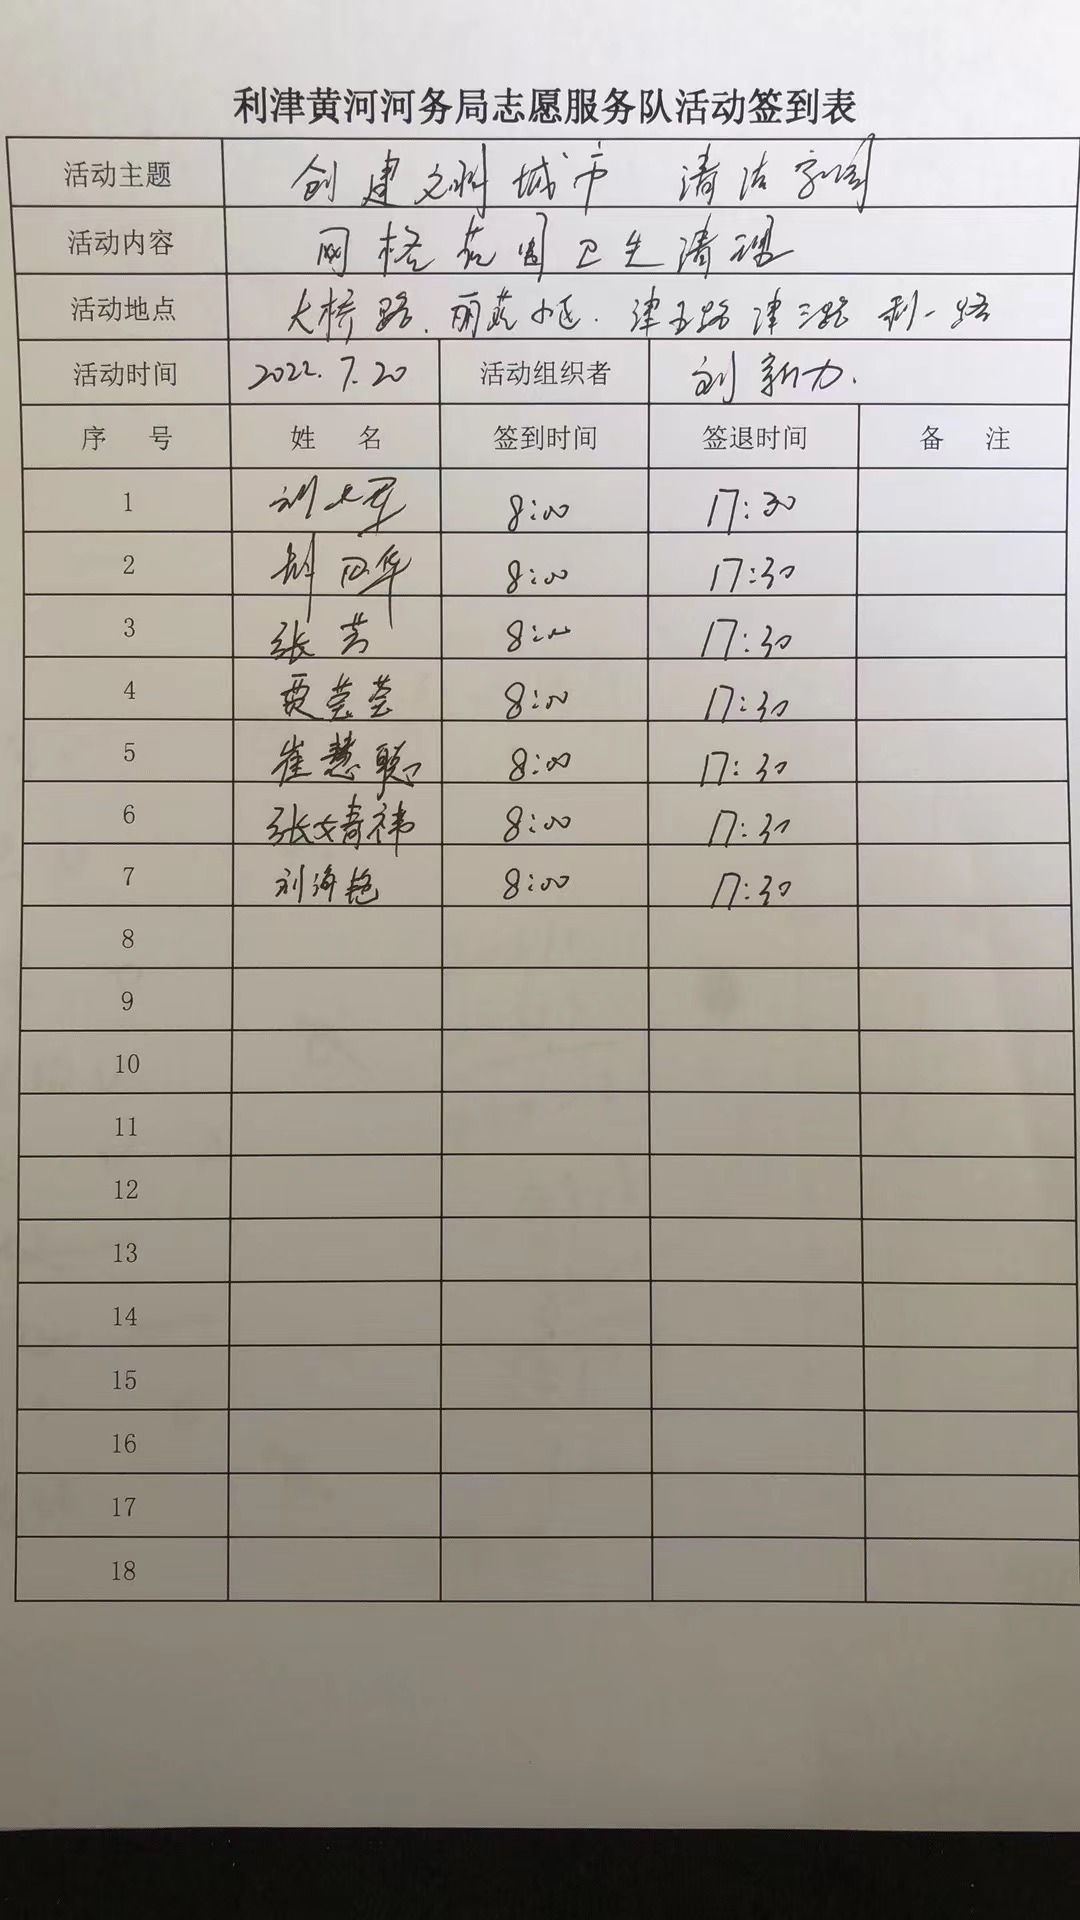 利津黄河河务局志愿服务队活动签到表
活动主题 创建文明城市 清洁家园
活动内容 网格范围卫生清理
活动地点 大桥路、丽苑小区、津五路 津三路 利一路
活动时间 2022.7.20 活动组织者 刘新力
序号 姓名 签到时间 签退时间 备注
1 刘 军 8:00 17:30
2 华 8:00 17:30
3 张芳 8:00 17:30
4 贾莞莞 8:00 17:30
5 崔慧聪 8:00 17:30
6 张婧祎 8:00 17:30
7 刘海艳 8:00 17:30
8
9
10
11
12
13
14
15
16
17
18